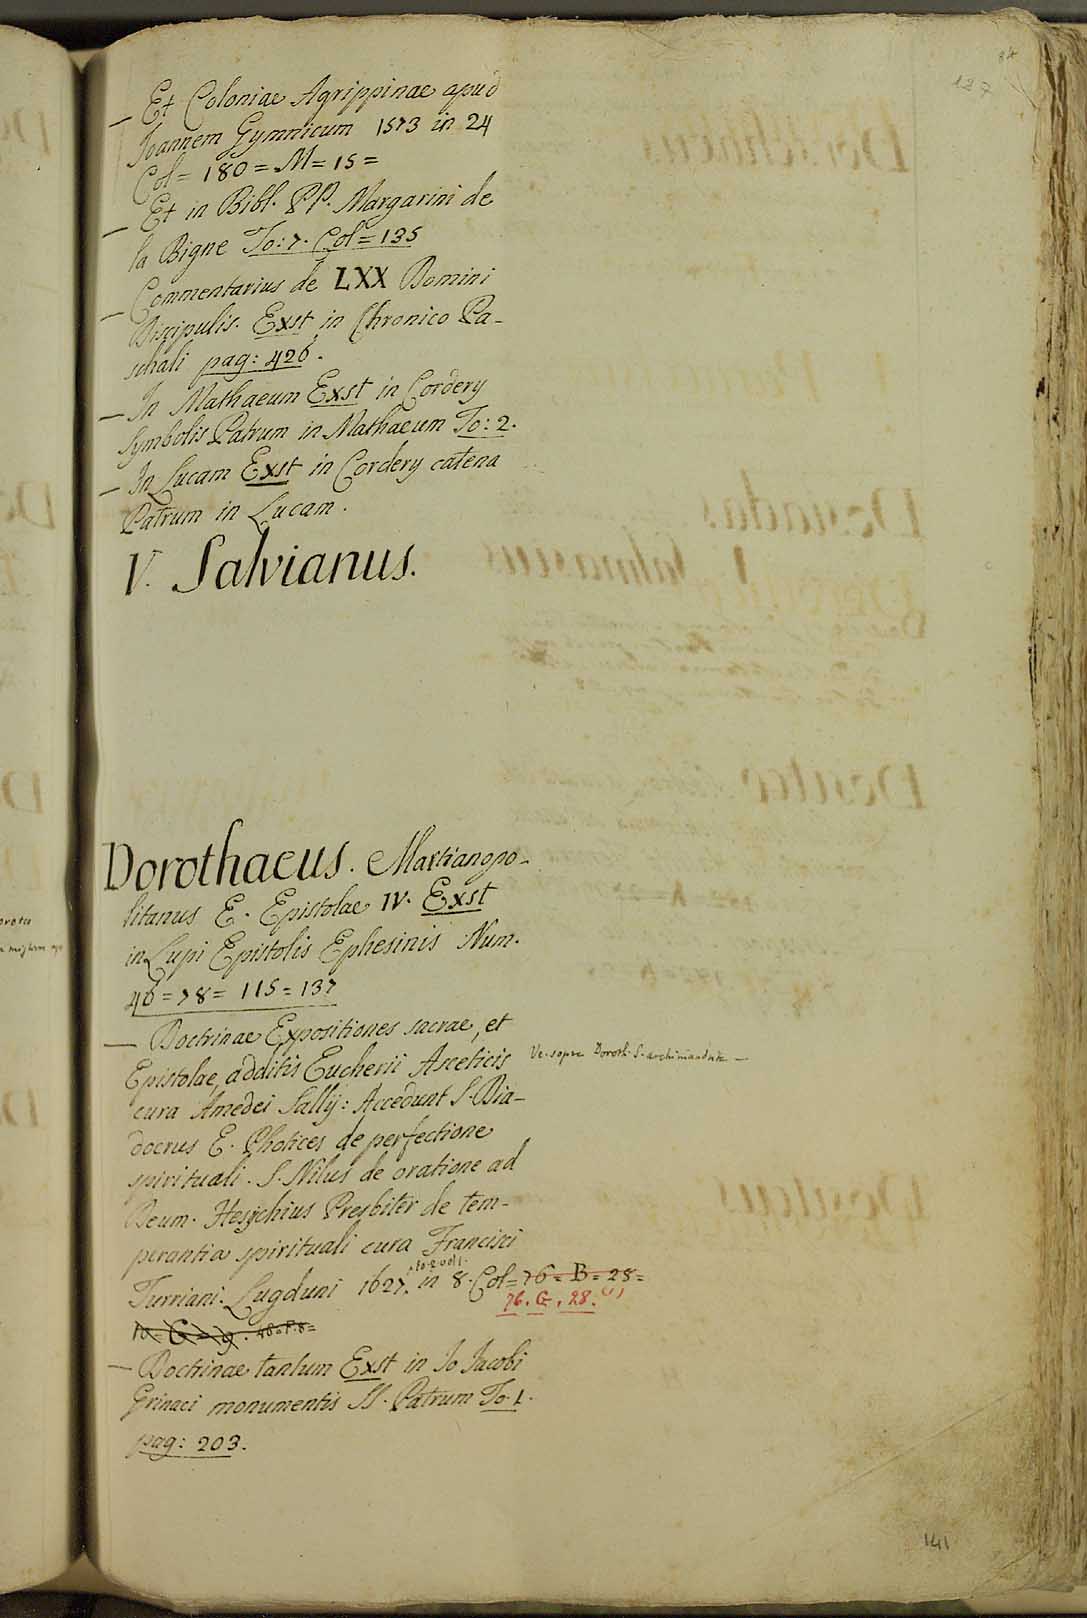 127
— Et Coloniae Agrippinae apud
Ioannem Gymnicum 1573 in 24
Col = 180 = M = 15 =
— Et in Bibl. PP. Margarini de
la Bigne To: 7. Col = 135
— Commentarius de LXX Domini
Discipulis. Exst in Chronico Pa-
schali pag: 426.
— In Mathaeum Exst in Cordery
Symbolis Patrum in Mathaeum To: 2.
— In Lucam Exst in Cordery catena
Patrum in Lucam.
V. Salvianus.
Dorothaeus. Martianopo-
litanus E. Epistolae IV. Exst
in Lupi Epistolis Ephesinis Num.
46 = 78 = 115 = 137
— Doctrinae Expositiones sacrae, et
Epistolae, additis Eucherii Asceticis
Ve. sopra Doroth. S. archimandrita —
cura Amedei Sallÿ: Accedunt S. Dia-
docrus E. Photices de perfectione
spirituali. S. Nilus de oratione ad
Deum. Hesychius Presbiter de tem-
perantia spirituali cura Francisci
Turriani. Lugduni 1627. in 8. Col = 76 = B = 28 =
76. G. 28.
10 = G = 9. 48 = F. 8 =
— Doctrinae tantum Exst in Io Jacobi
Grinaei monumentis SS. Patrum To. 1.
pag: 203.
141